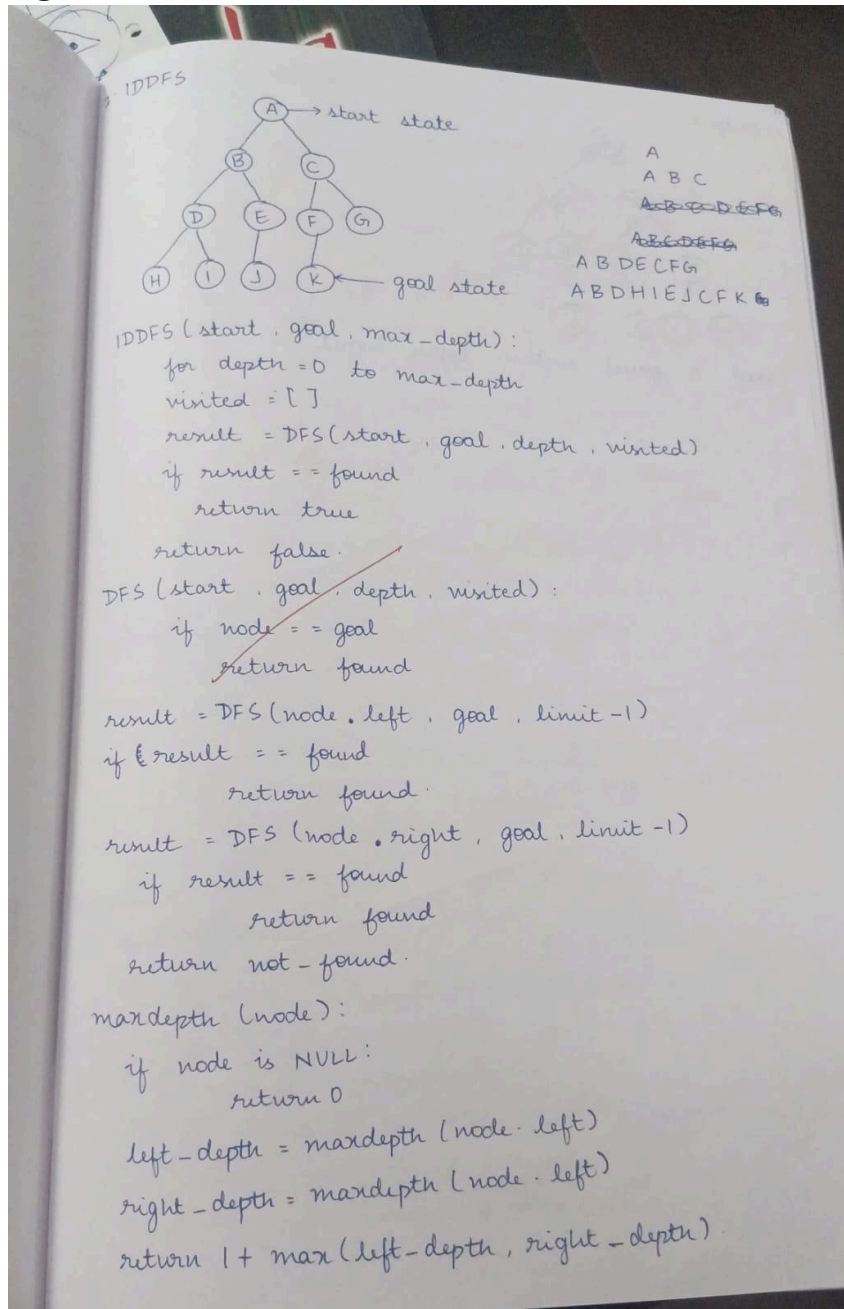 IDDFS
A → start state
B C
D E F G
H I J K ← goal state
A
A B C
A B C D E F G
A B C D E F G
A B D E C F G
A B D H I E J C F K
IDDFS (start, goal, max_depth):
for depth = 0 to max_depth
visited = [ ]
result = DFS(start, goal, depth, visited)
if result == found
return true
return false.
DFS (start, goal, depth, visited):
if node == goal
return found
result = DFS (node.left, goal, limit-1)
if result == found
return found.
result = DFS (node.right, goal, limit-1)
if result == found
return found
return not-found.
maxdepth (node):
if node is NULL:
return 0
left_depth = maxdepth (node.left)
right_depth = maxdepth (node.left)
return 1 + max (left_depth, right_depth)